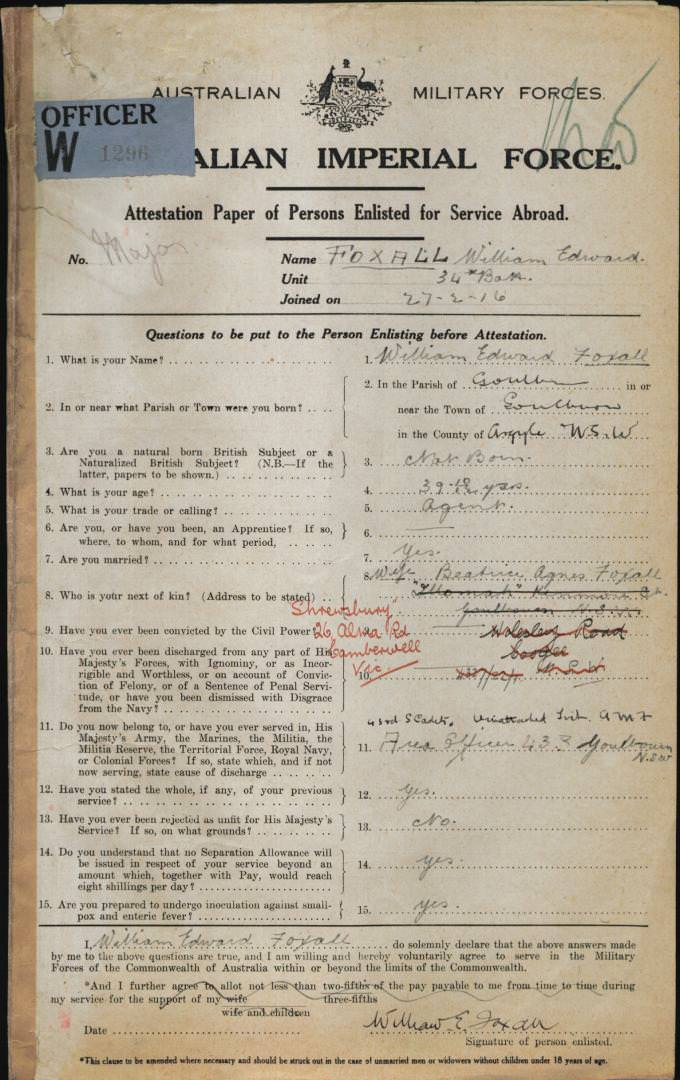 AUSTRALIAN MILITARY FORCES.
OFFICER
W 1296
ALIAN IMPERIAL FORCE.
Attestation Paper of Persons Enlisted for Service Abroad.
No. Major Name FOXALL William Edward.
Unit 34th Batt.
Joined on 27-2-16
Questions to be put to the Person Enlisting before Attestation.
1. What is your Name? 1. William Edward Foxall
2. In or near what Parish or Town were you born? 2. In the Parish of Goulbn in or
near the Town of Goulburn
in the County of Argyle N.S.W
3. Are you a natural born British Subject or a
Naturalized British Subject? (N.B.—If the
latter, papers to be shown.) 3. Nat Born.
4. What is your age? 4. 39 yrs.
5. What is your trade or calling? 5. Agent.
6. Are you, or have you been, an Apprentice? If so,
where, to whom, and for what period, 6. —
7. Are you married? 7. Yes.
8. Who is your next of kin? (Address to be stated) 8. Wife Beatrice Agnes Foxall
Goulburn N.S.W.
Shrewsbury
26, Alma Rd
Camberwell
Vic
Road
Coogee
9. Have you ever been convicted by the Civil Power?
10. Have you ever been discharged from any part of His
Majesty's Forces, with Ignominy, or as Incor-
rigible and Worthless, or on account of Convic-
tion of Felony, or of a Sentence of Penal Servi-
tude, or have you been dismissed with Disgrace
from the Navy? 10.
11. Do you now belong to, or have you ever served in, His
Majesty's Army, the Marines, the Militia, the
Militia Reserve, the Territorial Force, Royal Navy,
or Colonial Forces? If so, state which, and if not
now serving, state cause of discharge
43rd S Cadets, Unattached List. A M F
11. Area Officer 43B Goulburn
N.S.W
12. Have you stated the whole, if any, of your previous
service? 12. Yes.
13. Have you ever been rejected as unfit for His Majesty's
Service? If so, on what grounds? 13. No.
14. Do you understand that no Separation Allowance will
be issued in respect of your service beyond an
amount which, together with Pay, would reach
eight shillings per day? 14. yes.
15. Are you prepared to undergo inoculation against small-
pox and enteric fever? 15. yes.
I, William Edward Foxall do solemnly declare that the above answers made
by me to the above questions are true, and I am willing and hereby voluntarily agree to serve in the Military
Forces of the Commonwealth of Australia within or beyond the limits of the Commonwealth.
*And I further agree to allot not less than two-fifths of the pay payable to me from time to time during
my service for the support of my wife three-fifths
wife and children
Date William E. Foxall
Signature of person enlisted.
*This clause to be amended where necessary and should be struck out in the case of unmarried men or widowers without children under 18 years of age.